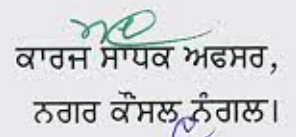 ਕਾਰਜ ਸਾਧਕ ਅਫਸਰ,
ਨਗਰ ਕੌਂਸਲ ਨੰਗਲ।